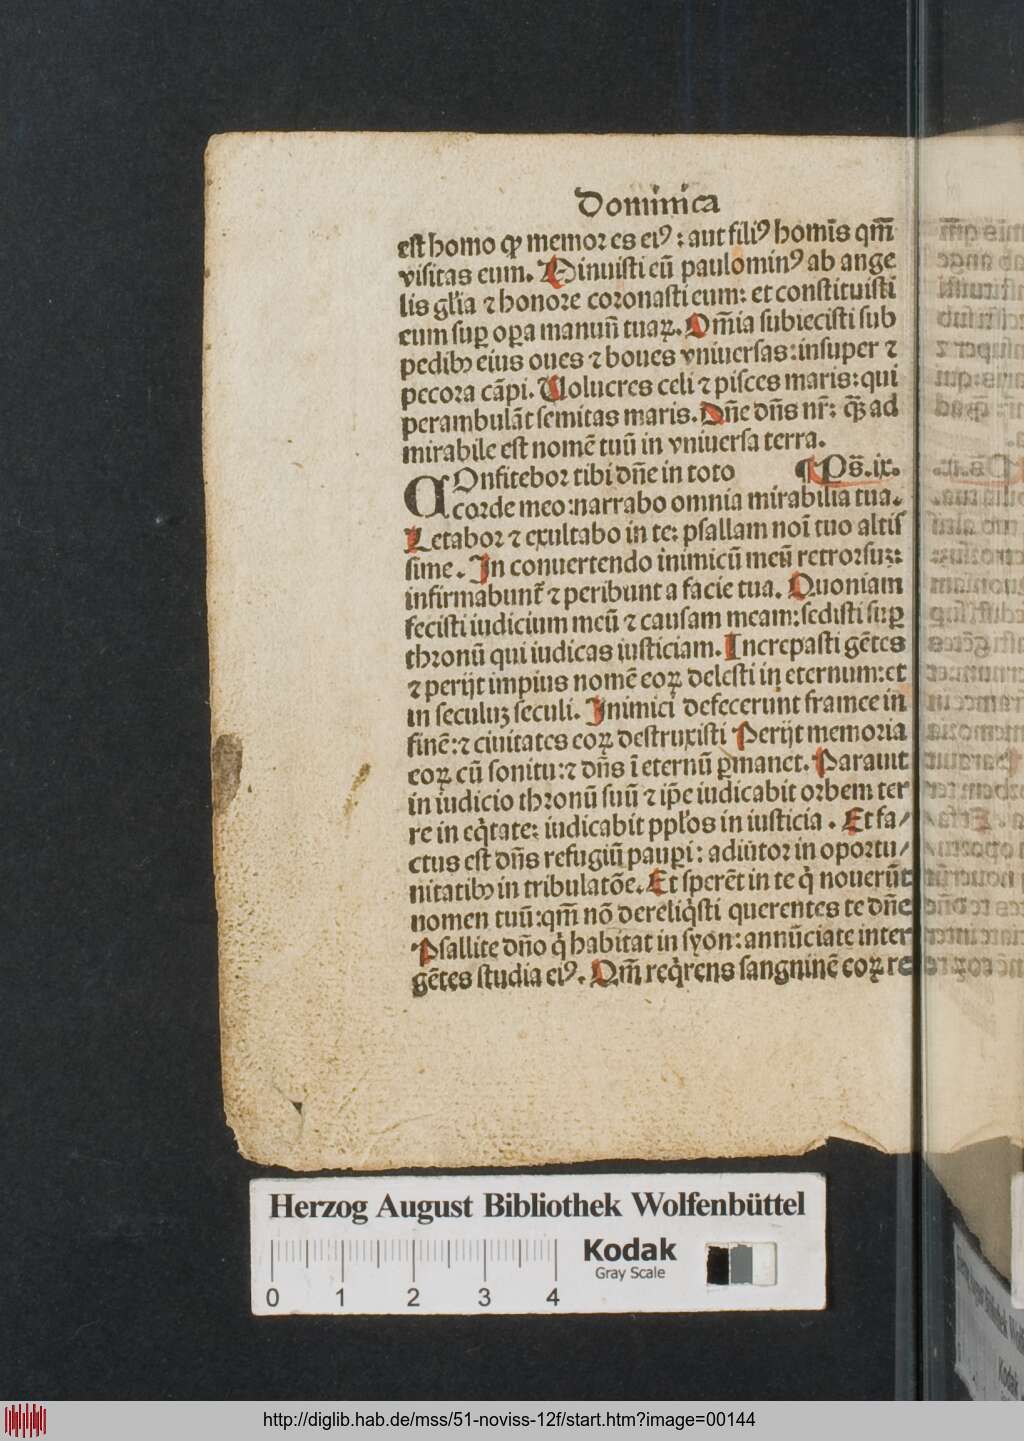 Dominica
est homo qꝫ memor es eiꝰ: aut filiꝰ homīs qm̄
visitas eum. Minuisti eū paulominꝰ ab ange
lis gl'ia ⁊ honore coronasti eum: et constituisti
eum suꝑ oꝑa manuū tuaꝝ. Om̄ia subiecisti sub
pedibꝫ eius oues ⁊ boues vniuersas: insuper ⁊
pecora cāpi. Uolucres celi ⁊ pisces maris: qui
perambulāt semitas maris. Dn̄e dn̄s nr̄: qꝫ̄ ad
mirabile est nomē tuū in vniuersa terra.
COnfitebor tibi dn̄e in toto ¶ Ps̄. ix.
corde meo: narrabo omnia mirabilia tua.
Letabor ⁊ exultabo in te: psallam noī tuo altis
sime. In conuertendo inimicū meū retrorsuꝫ:
infirmabunt̄ ⁊ peribunt a facie tua. Quoniam
fecisti iudicium meū ⁊ causam meam: sedisti suꝑ
thronū qui iudicas iusticiam. Increpasti gētes
⁊ perijt impius nomē eoꝝ delesti in eternum: et
in seculuꝫ seculi. Inimici defecerunt framee in
finē: ⁊ ciuitates eoꝝ destruxisti Perijt memoria
eoꝝ cū sonitu: ⁊ dn̄s ī eternū ꝑmanet. Parauit
in iudicio thronū suū ⁊ ip̄e iudicabit orbem ter
re in eq̇tate: iudicabit pp̄los in iusticia. Et fa/
ctus est dn̄s refugiū pauꝑi: adiūtor in oportu/
nitatibꝫ in tribulatōe. Et sperēt in te q̇ nouerūt
nomen tuū: qm̄ nō dereliq̇sti querentes te dn̄e
Psallite dn̄o q̇ habitat in syon: annūciate inter
gētes studia eiꝰ. Qm̄ req̇rens sanguinē eoꝝ re
Herzog August Bibliothek Wolfenbüttel
Kodak
Gray Scale
0 1 2 3 4
http://diglib.hab.de/mss/51-noviss-12f/start.htm?image=00144